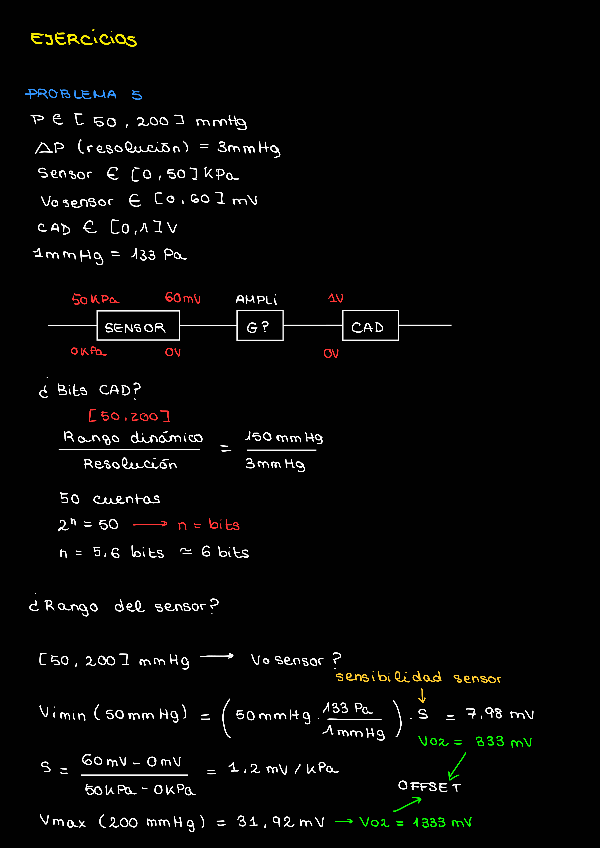 EJERCICIOS
PROBLEMA 5
P ∈ [50, 200] mmHg
ΔP (resolución) = 3mmHg
Sensor ∈ [0,50] KPa
Vosensor ∈ [0,60] mV
CAD ∈ [0,1] V
1mmHg = 133 Pa
50KPa 60mV AMPLI 1V
SENSOR G? CAD
0KPa 0V 0V
¿Bits CAD?
[50,200]
Rango dinámico / Resolución = 150mmHg / 3mmHg
50 cuentas
2ⁿ = 50 → n = bits
n = 5,6 bits ≃ 6 bits
¿Rango del sensor?
[50, 200] mmHg → Vosensor?
sensibilidad sensor
Vimin (50mmHg) = (50mmHg · 133 Pa / 1mmHg) · S = 7,98 mV
Vo2 = 333 mV
S = 60mV - 0mV / 50KPa - 0KPa = 1,2 mV/KPa
OFFSET
Vmax (200 mmHg) = 31,92 mV → Vo2 = 1333 mV